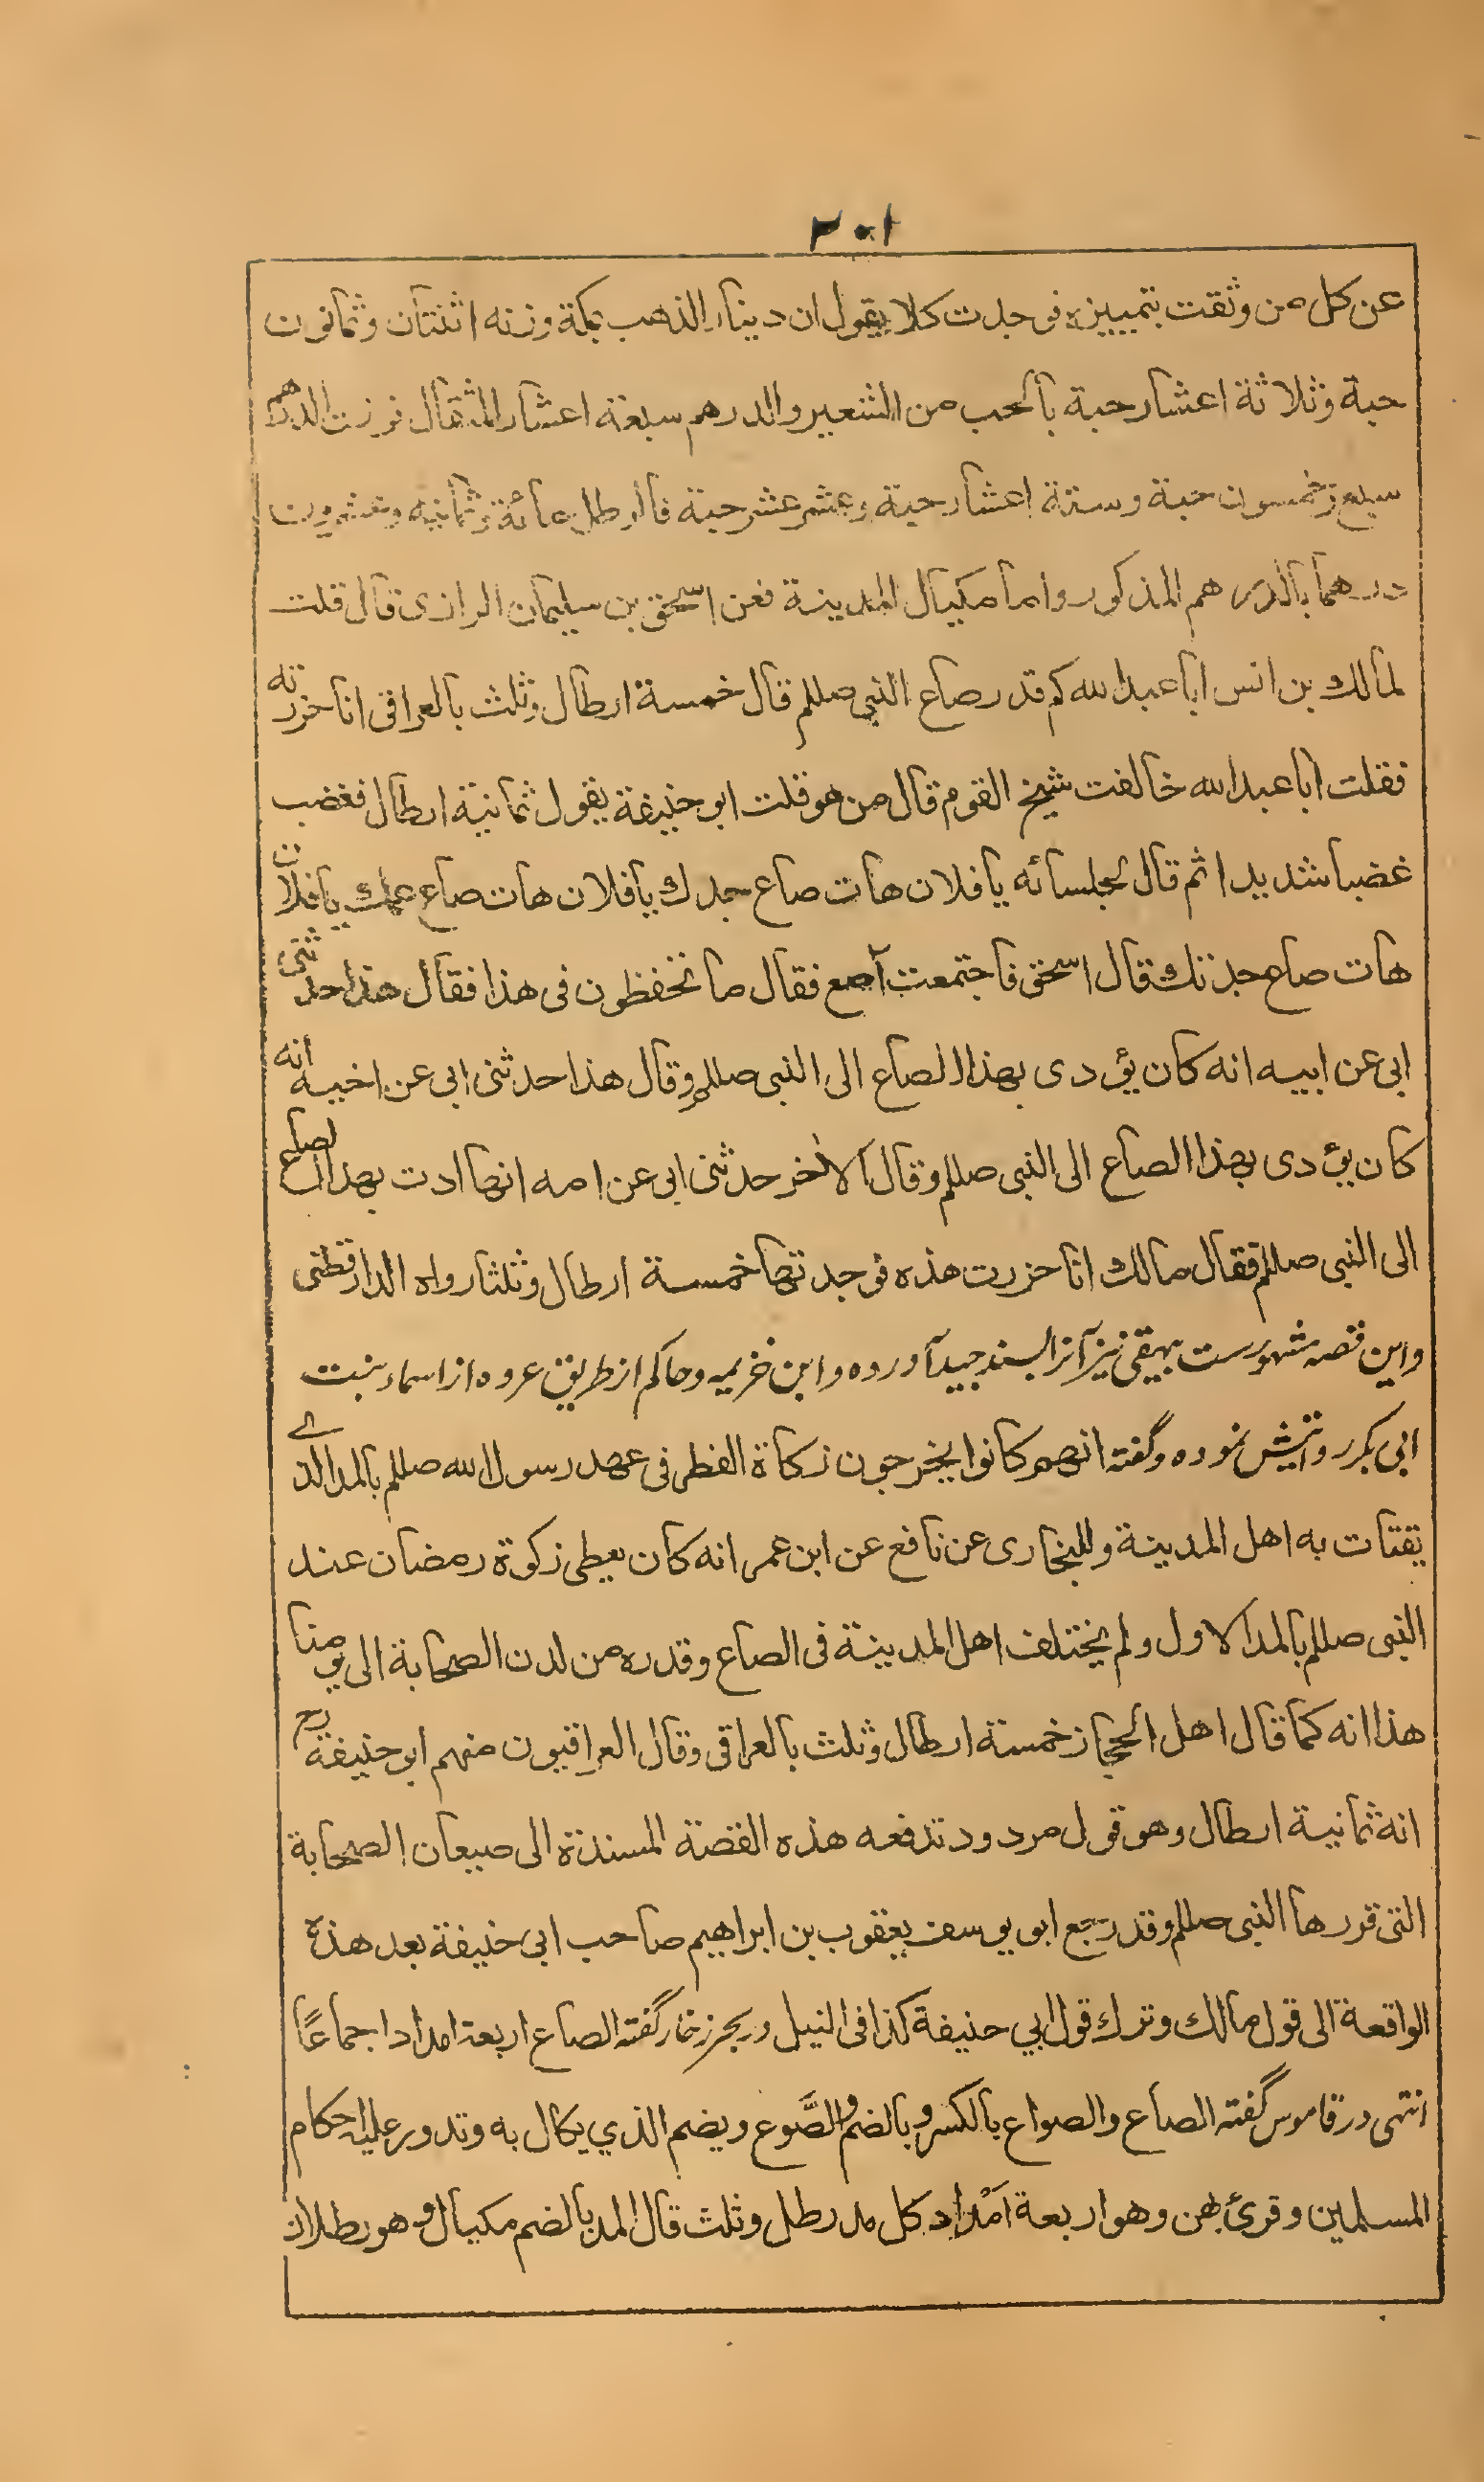 ٢٠١
عن كل من وثقت بتمييزه فوجدت كلا يقول ان دينار الذهب بمكة وزنه اثنتان وثمانون
حبة وثلاثة اعشار حبة بالحب من الشعير والدرهم سبعة اعشار المثقال فوزن الدرهم
سبع وخمسون حبة وستة اعشار حبة وعشر عشر حبة فالرطل مائة وثمانية وعشرون
درهما بالدرهم المذكور واما مكيال المدينة فعن اسحق بن سليمان الرازى قال قلت
لمالك بن انس ابا عبد الله كم قدر صاع النبي صللم قال خمسة ارطال وثلث بالعراقى انا حزرته
فقلت ابا عبد الله خالفت شيخ القوم قال من هو قلت ابو حنيفة يقول ثمانية ارطال فغضب
غضبا شديدا ثم قال لجلسائه يا فلان هات صاع جدك يا فلان هات صاع عمك يا فلان
هات صاع جدتك قال اسحق فاجتمعت آصع فقال ما تحفظون فى هذا فقال هذا حدثنى
ابى عن ابيه انه كان يؤدى بهذا الصاع الى النبى صللم وقال هذا حدثنى ابى عن اخيه انه
كان يؤدى بهذا الصاع الى النبى صللم وقال الآخر حدثنى ابى عن امه انها ادت بهذا الصاع
الى النبى صللم فقال مالك انا حزرت هذه فوجدتها خمسة ارطال وثلثا رواه الدارقطنى
واين قصه مشهورست بيهقى نيز آنرا بسند جيد آورده وابن خزيمه وحاكم از طريق عروه از اسماء بنت
ابى بكر روايتش نموده وگفته انهم كانوا يخرجون زكاة الفطر فى عهد رسول الله صللم بالمد الذے
يقتات به اهل المدينة وللبخارى عن نافع عن ابن عمر انه كان يعطى زكوة رمضان عند
النبى صللم بالمد الاول ولم يختلف اهل المدينة فى الصاع وقدره من لدن الصحابة الى يومنا
هذا انه كما قال اهل الحجاز خمسة ارطال وثلث بالعراقى وقال العراقيون منهم ابو حنيفة رح
انه ثمانية ارطال وهو قول مردود تدفعه هذه القصة المسندة الى صيعان الصحابة
التى قررها النبى صللم وقد رجع ابو يوسف يعقوب بن ابراهيم صاحب ابى حنيفة بعد هذه
الواقعة الى قول مالك وترك قول ابي حنيفة كذا فى النيل ودر بحر زخار گفته الصاع اربعة امداد اجماعًا
انتهى در قاموس گفته الصاع والصواع بالكسر و بالضم والصَّوع ويضم الذي يكال به وتدور عليه احكام
المسلمين وقرئ بهن وهو اربعة امداد كل مد رطل وثلث قال المد بالضم مكيال وهو رطلان